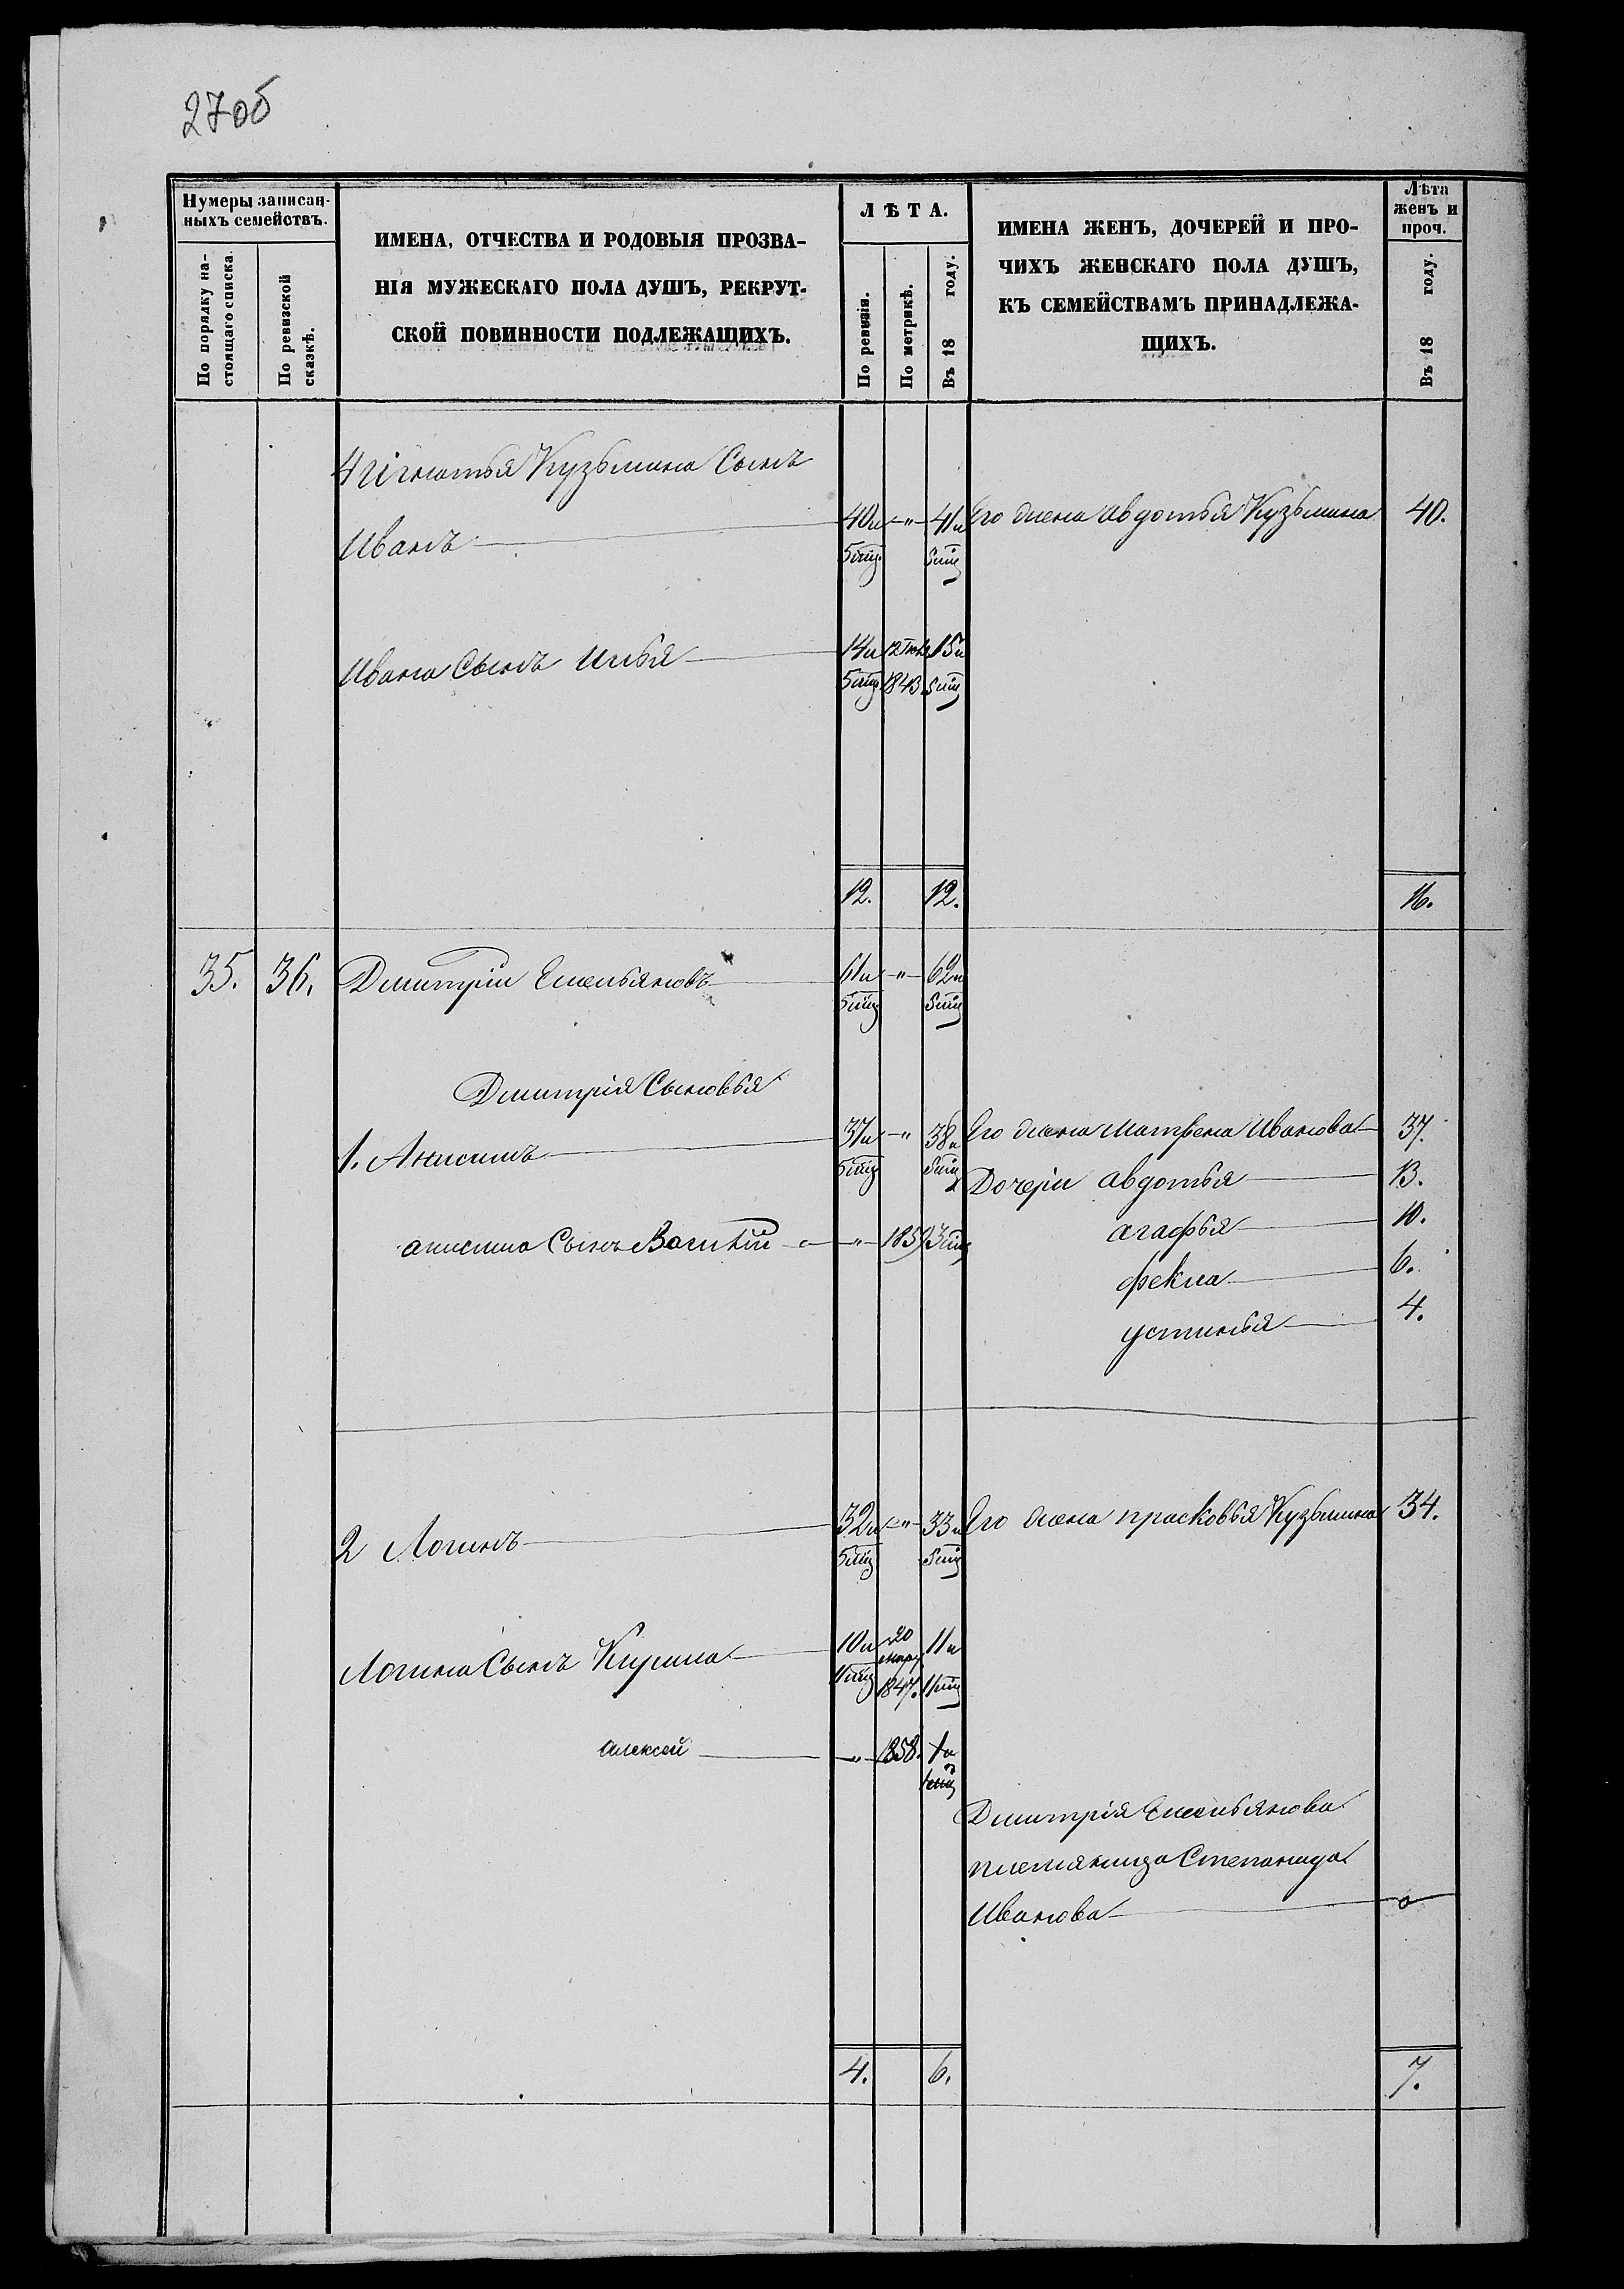 27об
Нумеры записан-
ныхъ семействъ.
По порядку на-
стоящаго списка.
По ревизской
сказкѣ.
ИМЕНА, ОТЧЕСТВА И РОДОВЫЯ ПРОЗВА-
НІЯ МУЖЕСКАГО ПОЛА ДУШЪ, РЕКРУТ-
СКОЙ ПОВИННОСТИ ПОДЛЕЖАЩИХЪ.
ЛѢТА.
По ревизіи.
По метрикѣ.
Въ 18 году.
ИМЕНА ЖЕНЪ, ДОЧЕРЕЙ И ПРО-
ЧИХЪ ЖЕНСКАГО ПОЛА ДУШЪ,
КЪ СЕМЕЙСТВАМЪ ПРИНАДЛЕЖА-
ЩИХЪ.
Лѣта
женъ и
проч.
Въ 18 году.
Кузьмина Сынъ
Иванъ 40и " 41и Его жена авдотья Кузьмина 40.
5мц. 5мц
Ивана Сынъ Илья 14и 12 15и
5мц 1843. 5мц
12. 12. 16.
35. 36. Дмитріи Емельяновъ 61и " 62и
5мц 5мц
Дмитрія Сыновья
1. Анисимъ 37и " 38и Его жена Матрена Иванова 37.
5мц 5мц Дочери авдотья 13.
агафья 10.
анисима Сынъ Василій " 1859 3мц
фекла 6.
устинья 4.
2 Логинъ 32и " 33и Его жена прасковья Кузьмина 34.
5мц 5мц
Логина Сынъ Кирила 10и 20 11и
11мц 1847. 11мц
алексей " 1858. 1и
Дмитрія Емельянова
племяница Степанида
Иванова
4. 6. 7.